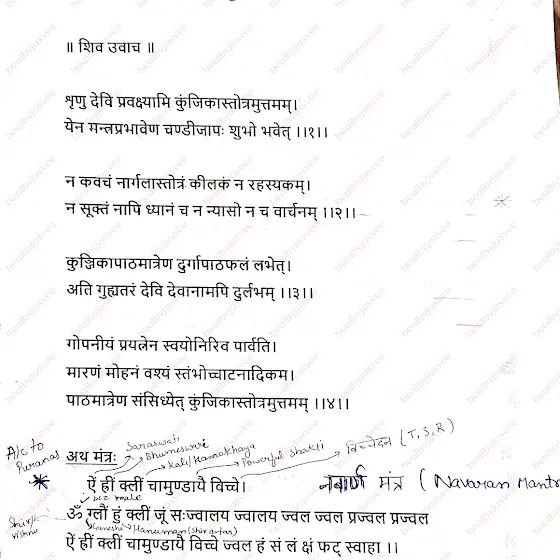 ॥ शिव उवाच ॥
शृणु देवि प्रवक्ष्यामि कुंजिकास्तोत्रमुत्तमम्।
येन मन्त्रप्रभावेण चण्डीजापः शुभो भवेत् ।।१।।
न कवचं नार्गलास्तोत्रं कीलकं न रहस्यकम्।
न सूक्तं नापि ध्यानं च न न्यासो न च वार्चनम् ।।२।।
कुञ्जिकापाठमात्रेण दुर्गापाठफलं लभेत्।
अति गुह्यतरं देवि देवानामपि दुर्लभम् ।।३।।
गोपनीयं प्रयत्नेन स्वयोनिरिव पार्वति।
मारणं मोहनं वश्यं स्तंभोच्चाटनादिकम।
पाठमात्रेण संसिध्येत् कुंजिकास्तोत्रमुत्तमम् ।।४।।
A/c to Puranas
अथ मंत्रः
Saraswati
Bhumeswari
Kali/Kamakhaya
Powerful Shakti
विच्चेदन (T,S,R)
ऐं ह्रीं क्लीं चामुण्डायै विच्चे।
नबार्ण मंत्र (Navaran Mantr
ॐ ग्लौं हुं क्लीं जूं सःज्वालय ज्वालय ज्वल ज्वल प्रज्वल प्रज्वल
Ganesha
Hanuman
ऐं ह्रीं क्लीं चामुण्डायै विच्चे ज्वल हं सं लं क्षं फट् स्वाहा ।।